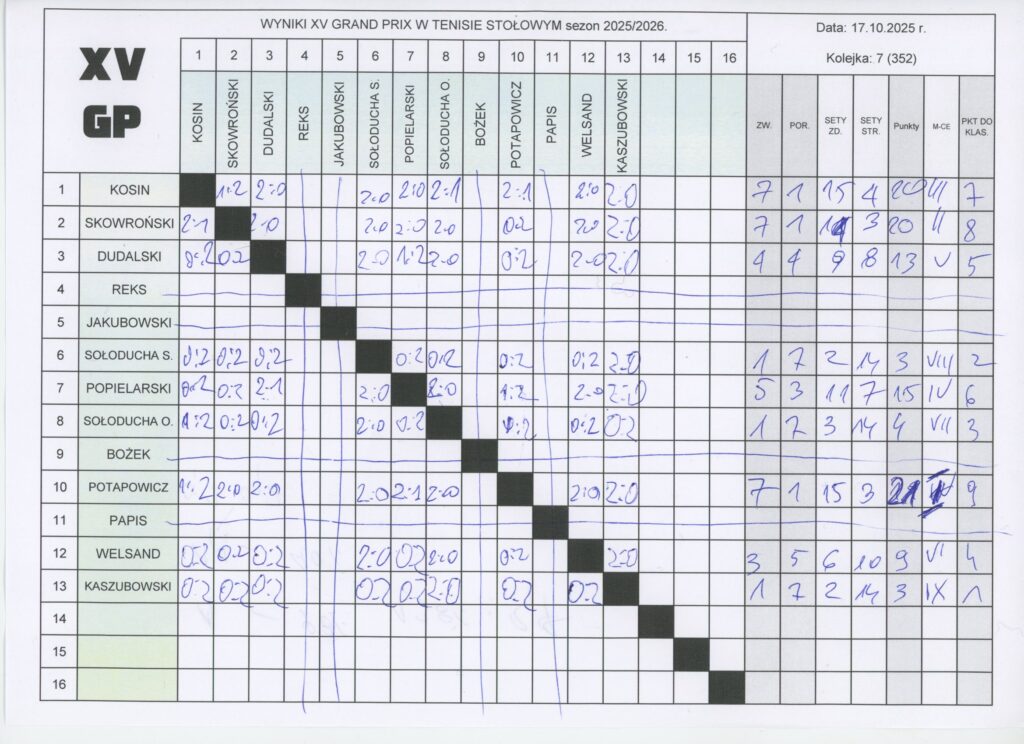 WYNIKI XV GRAND PRIX W TENISIE STOŁOWYM sezon 2025/2026.
Data: 17.10.2025 r.
Kolejka: 7 (352)
XV
GP
1 2 3 4 5 6 7 8 9 10 11 12 13 14 15 16
KOSIN SKOWROŃSKI DUDALSKI REKS JAKUBOWSKI SOŁODUCHA S. POPIELARSKI SOŁODUCHA O. BOŻEK POTAPOWICZ PAPIS WELSAND KASZUBOWSKI
ZW. POR. SETY ZD. SETY STR. Punkty M-CE PKT DO KLAS.
1 KOSIN 1:2 2:0 2:0 2:0 2:1 2:1 2:0 2:0 7 1 15 4 20 III 7
2 SKOWROŃSKI 2:1 2:0 2:0 2:0 2:0 0:2 2:0 2:0 7 1 14 3 20 II 8
3 DUDALSKI 0:2 0:2 2:0 1:2 2:0 0:2 2:0 2:0 4 4 9 8 13 V 5
4 REKS
5 JAKUBOWSKI
6 SOŁODUCHA S. 0:2 0:2 0:2 0:2 0:2 0:2 0:2 2:0 1 7 2 14 3 VIII 2
7 POPIELARSKI 0:2 0:2 2:1 2:0 2:0 1:2 2:0 2:0 5 3 11 7 15 IV 6
8 SOŁODUCHA O. 1:2 0:2 0:2 2:0 0:2 0:2 0:2 1 7 3 14 4 VII 3
9 BOŻEK
10 POTAPOWICZ 1:2 2:0 2:0 2:0 2:1 2:0 2:0 2:0 7 1 15 3 21 I 9
11 PAPIS
12 WELSAND 0:2 0:2 0:2 2:0 0:2 2:0 0:2 2:0 3 5 6 10 9 VI 4
13 KASZUBOWSKI 0:2 0:2 0:2 0:2 0:2 2:0 0:2 0:2 1 7 2 14 3 IX 1
14
15
16